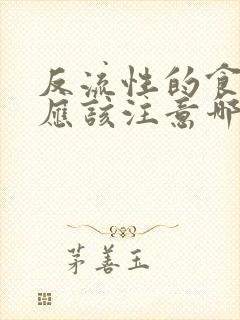 反流性的食
應該注意哪
茅善玉